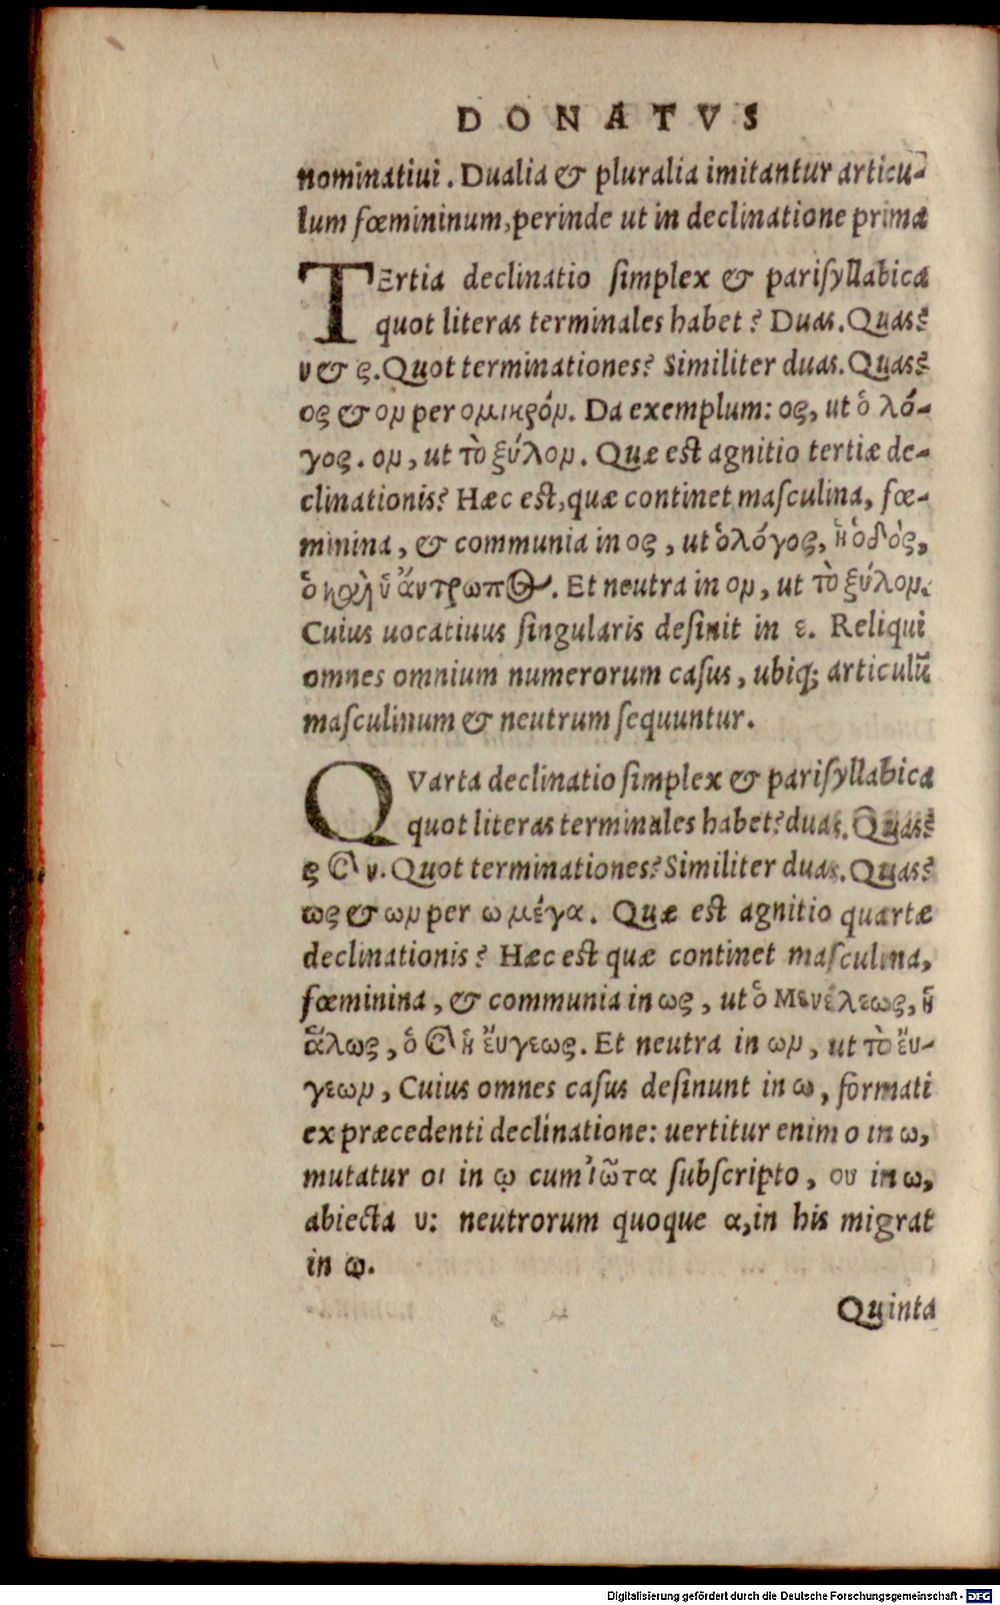 DONATVS
nominatiui. Dualia & pluralia imitantur articu-
lum fœmininum, perinde ut in declinatione prima
TErtia declinatio ſimplex & pariſyllabica
quot literas terminales habet? Duas. Quas?
ν & ς. Quot terminationes? Similiter duas. Quas?
ος & ον per ομικρόν. Da exemplum: ος, ut ὁ λό-
γος. ον, ut τὸ ξύλον. Quæ eſt agnitio tertiæ de-
clinationis? Hæc eſt, quæ continet maſculina, fœ-
minina, & communia in ος, ut ὁ λόγος, ἡ ὁδὸς,
ὁ καὶ ἡ ἄντρωπος. Et neutra in ον, ut τὸ ξύλον.
Cuius uocatiuus ſingularis deſinit in ε. Reliqui
omnes omnium numerorum caſus, ubiq; articulũ
maſculinum & neutrum ſequuntur.
QVarta declinatio ſimplex & pariſyllabica
quot literas terminales habet? duas. Quas?
ς & ν. Quot terminationes? Similiter duas. Quas?
ως & ων per ω μέγα. Quæ eſt agnitio quartæ
declinationis? Hæc eſt quæ continet maſculina,
fœminina, & communia in ως, ut ὁ Μενέλεως, ἡ
ἅλως, ὁ & ἡ ἔυγεως. Et neutra in ων, ut τὸ ἔυ-
γεων, Cuius omnes caſus deſinunt in ω, formati
ex præcedenti declinatione: uertitur enim ο in ω,
mutatur οι in ῳ cum ἰῶτα ſubſcripto, ου in ω,
abiecta υ: neutrorum quoque α, in his migrat
in ω.
Quinta
Digitalisierung gefördert durch die Deutsche Forschungsgemeinschaft - DFG